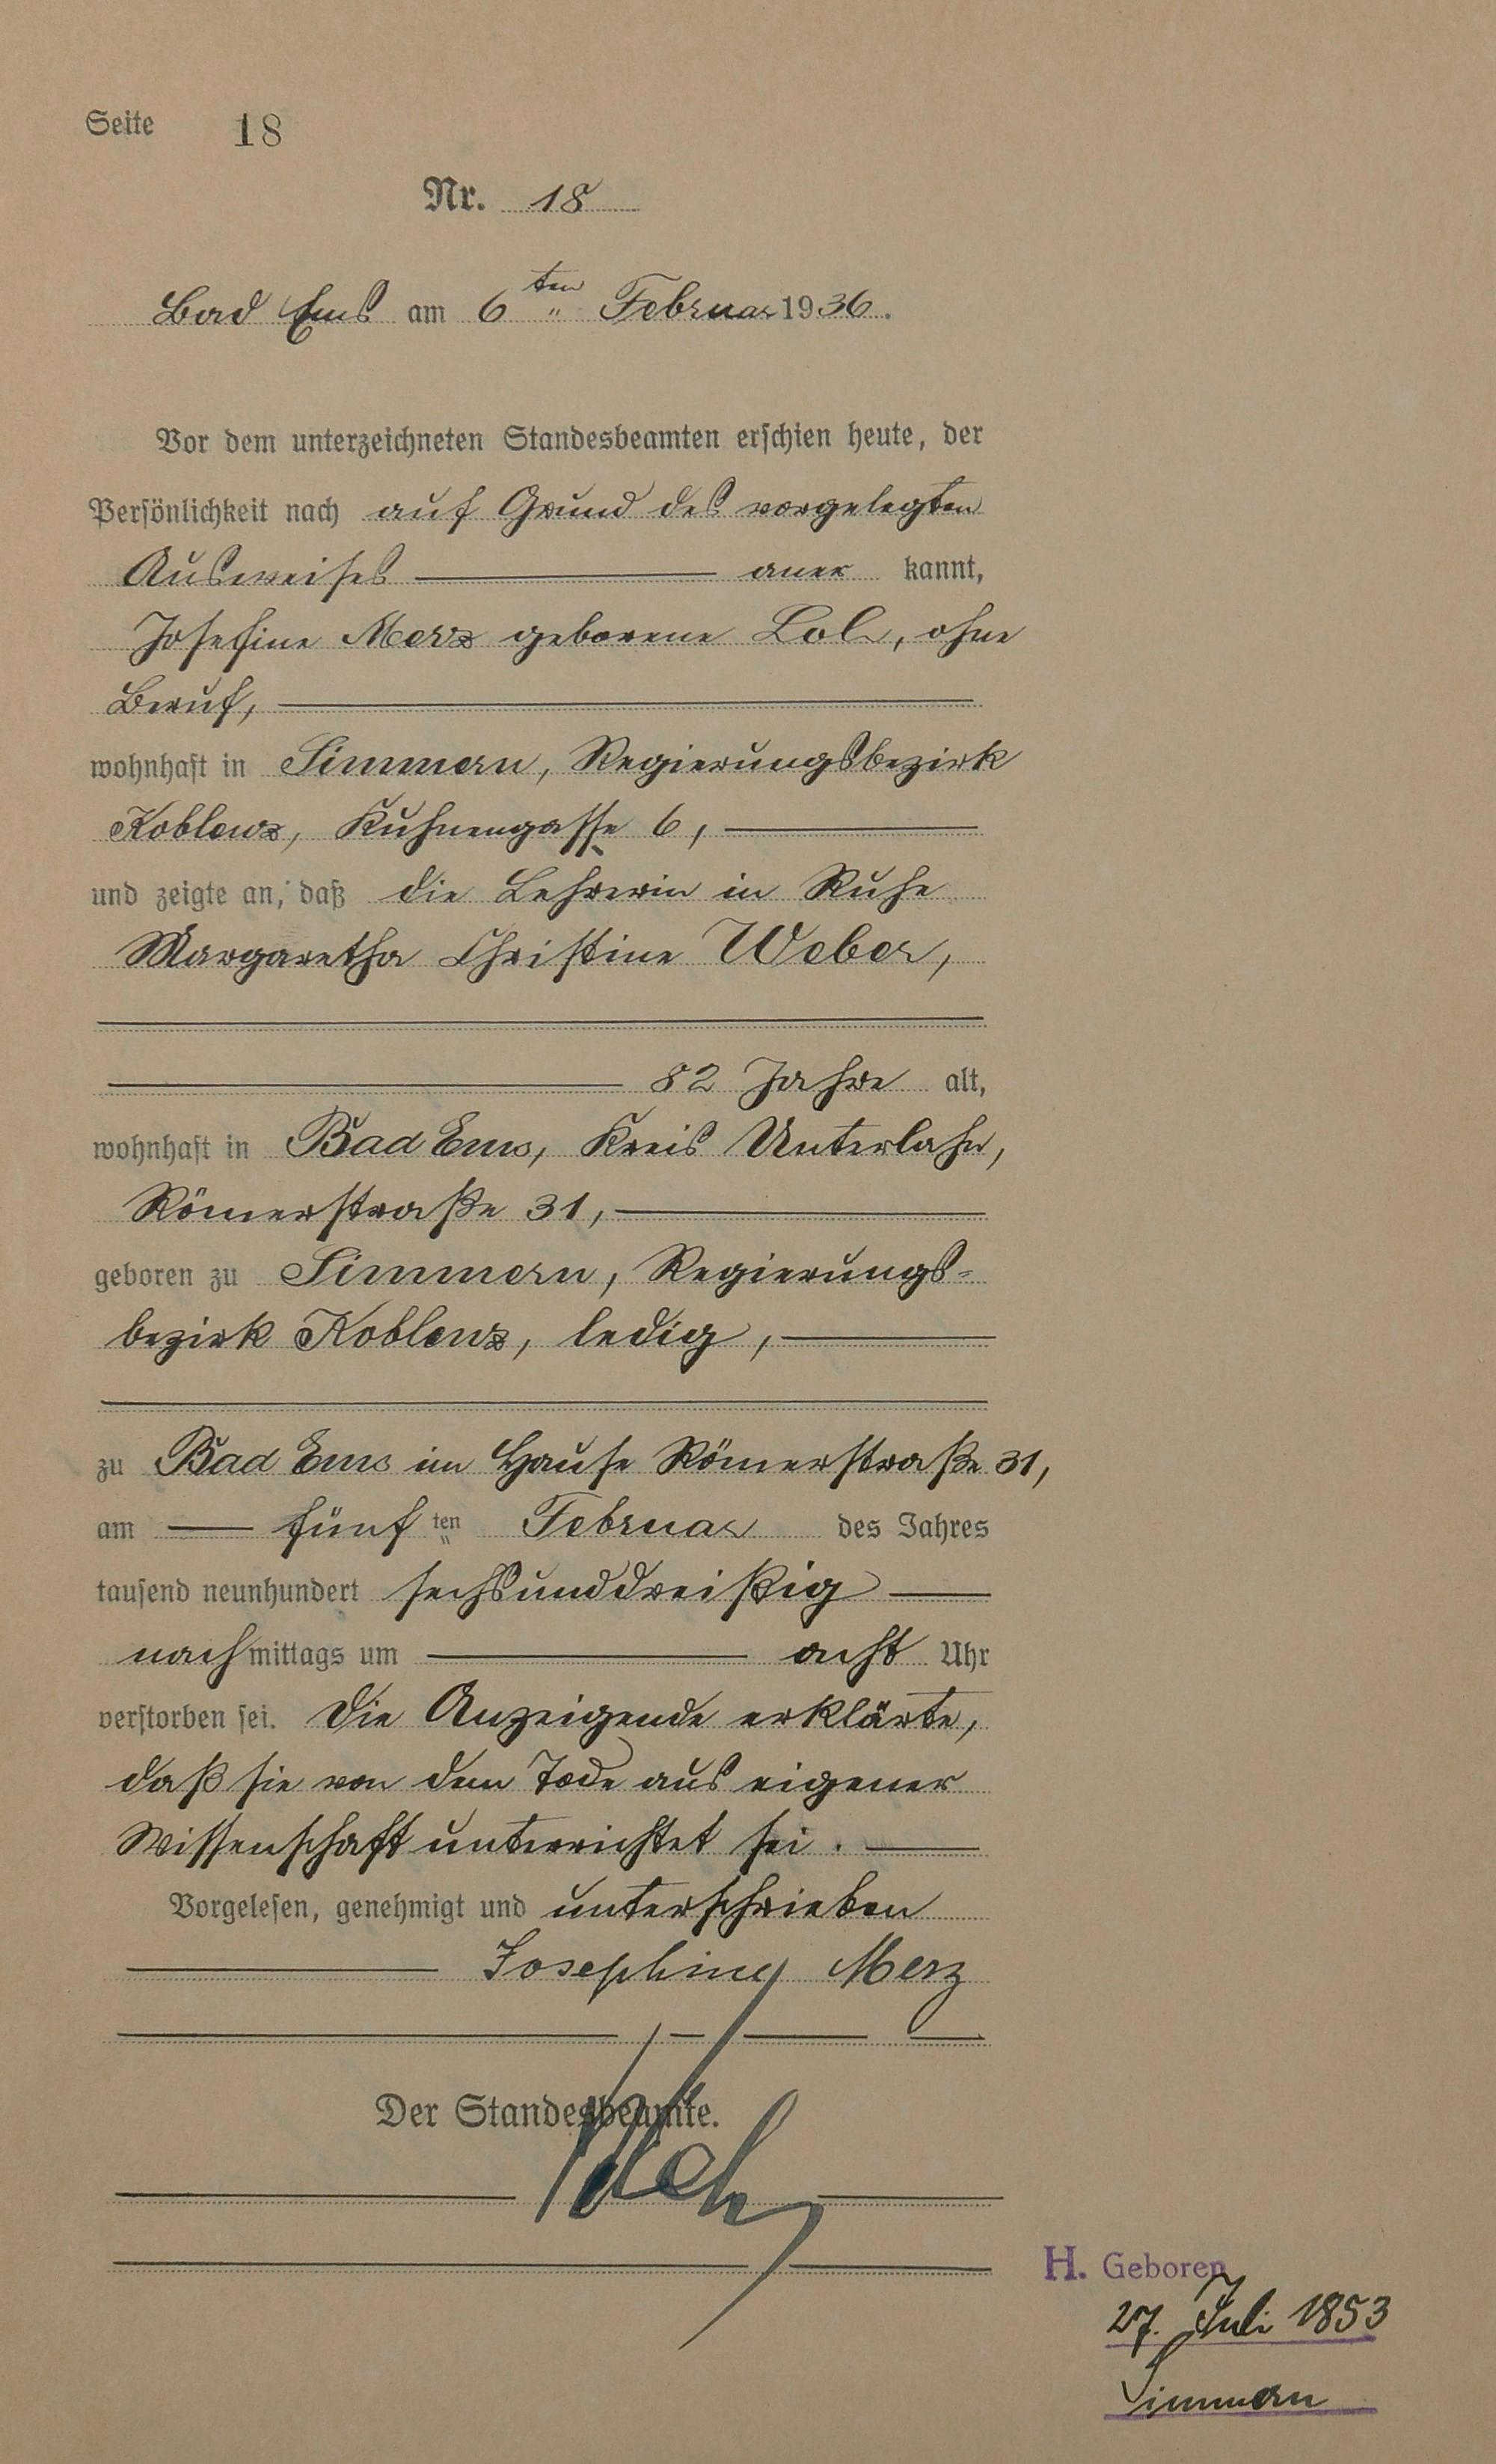 Seite 18
Nr. 18
Bad Ems am 6ten Februar 1936.
Vor dem unterzeichneten Standesbeamten erschien heute, der
Persönlichkeit nach auf Grund des vorgelegten
Ausweises aner kannt,
Josefine Merz geborene Lol, ohne
Beruf,
wohnhaft in Simmern, Regierungsbezirk
Koblenz, Kuhnengasse 6,
und zeigte an, daß die Lehrerin in Ruhe
Margaretha Christine Weber,
82 Jahre alt,
wohnhaft in Bad Ems, Kreis Unterlahn,
Römerstraße 31,
geboren zu Simmern, Regierungs-
bezirk Koblenz, ledig,
zu Bad Ems im Hause Römerstraße 31,
am fünf ten Februar des Jahres
tausend neunhundert sechsunddreißig
nachmittags um acht Uhr
verstorben sei. Die Anzeigende erklärte,
daß sie von dem Tode aus eigener
Wissenschaft unterrichtet sei.
Vorgelesen, genehmigt und unterschrieben
Josephine Merz
Der Standesbeamte.
H. Geboren
27. Juli 1853
Simmern